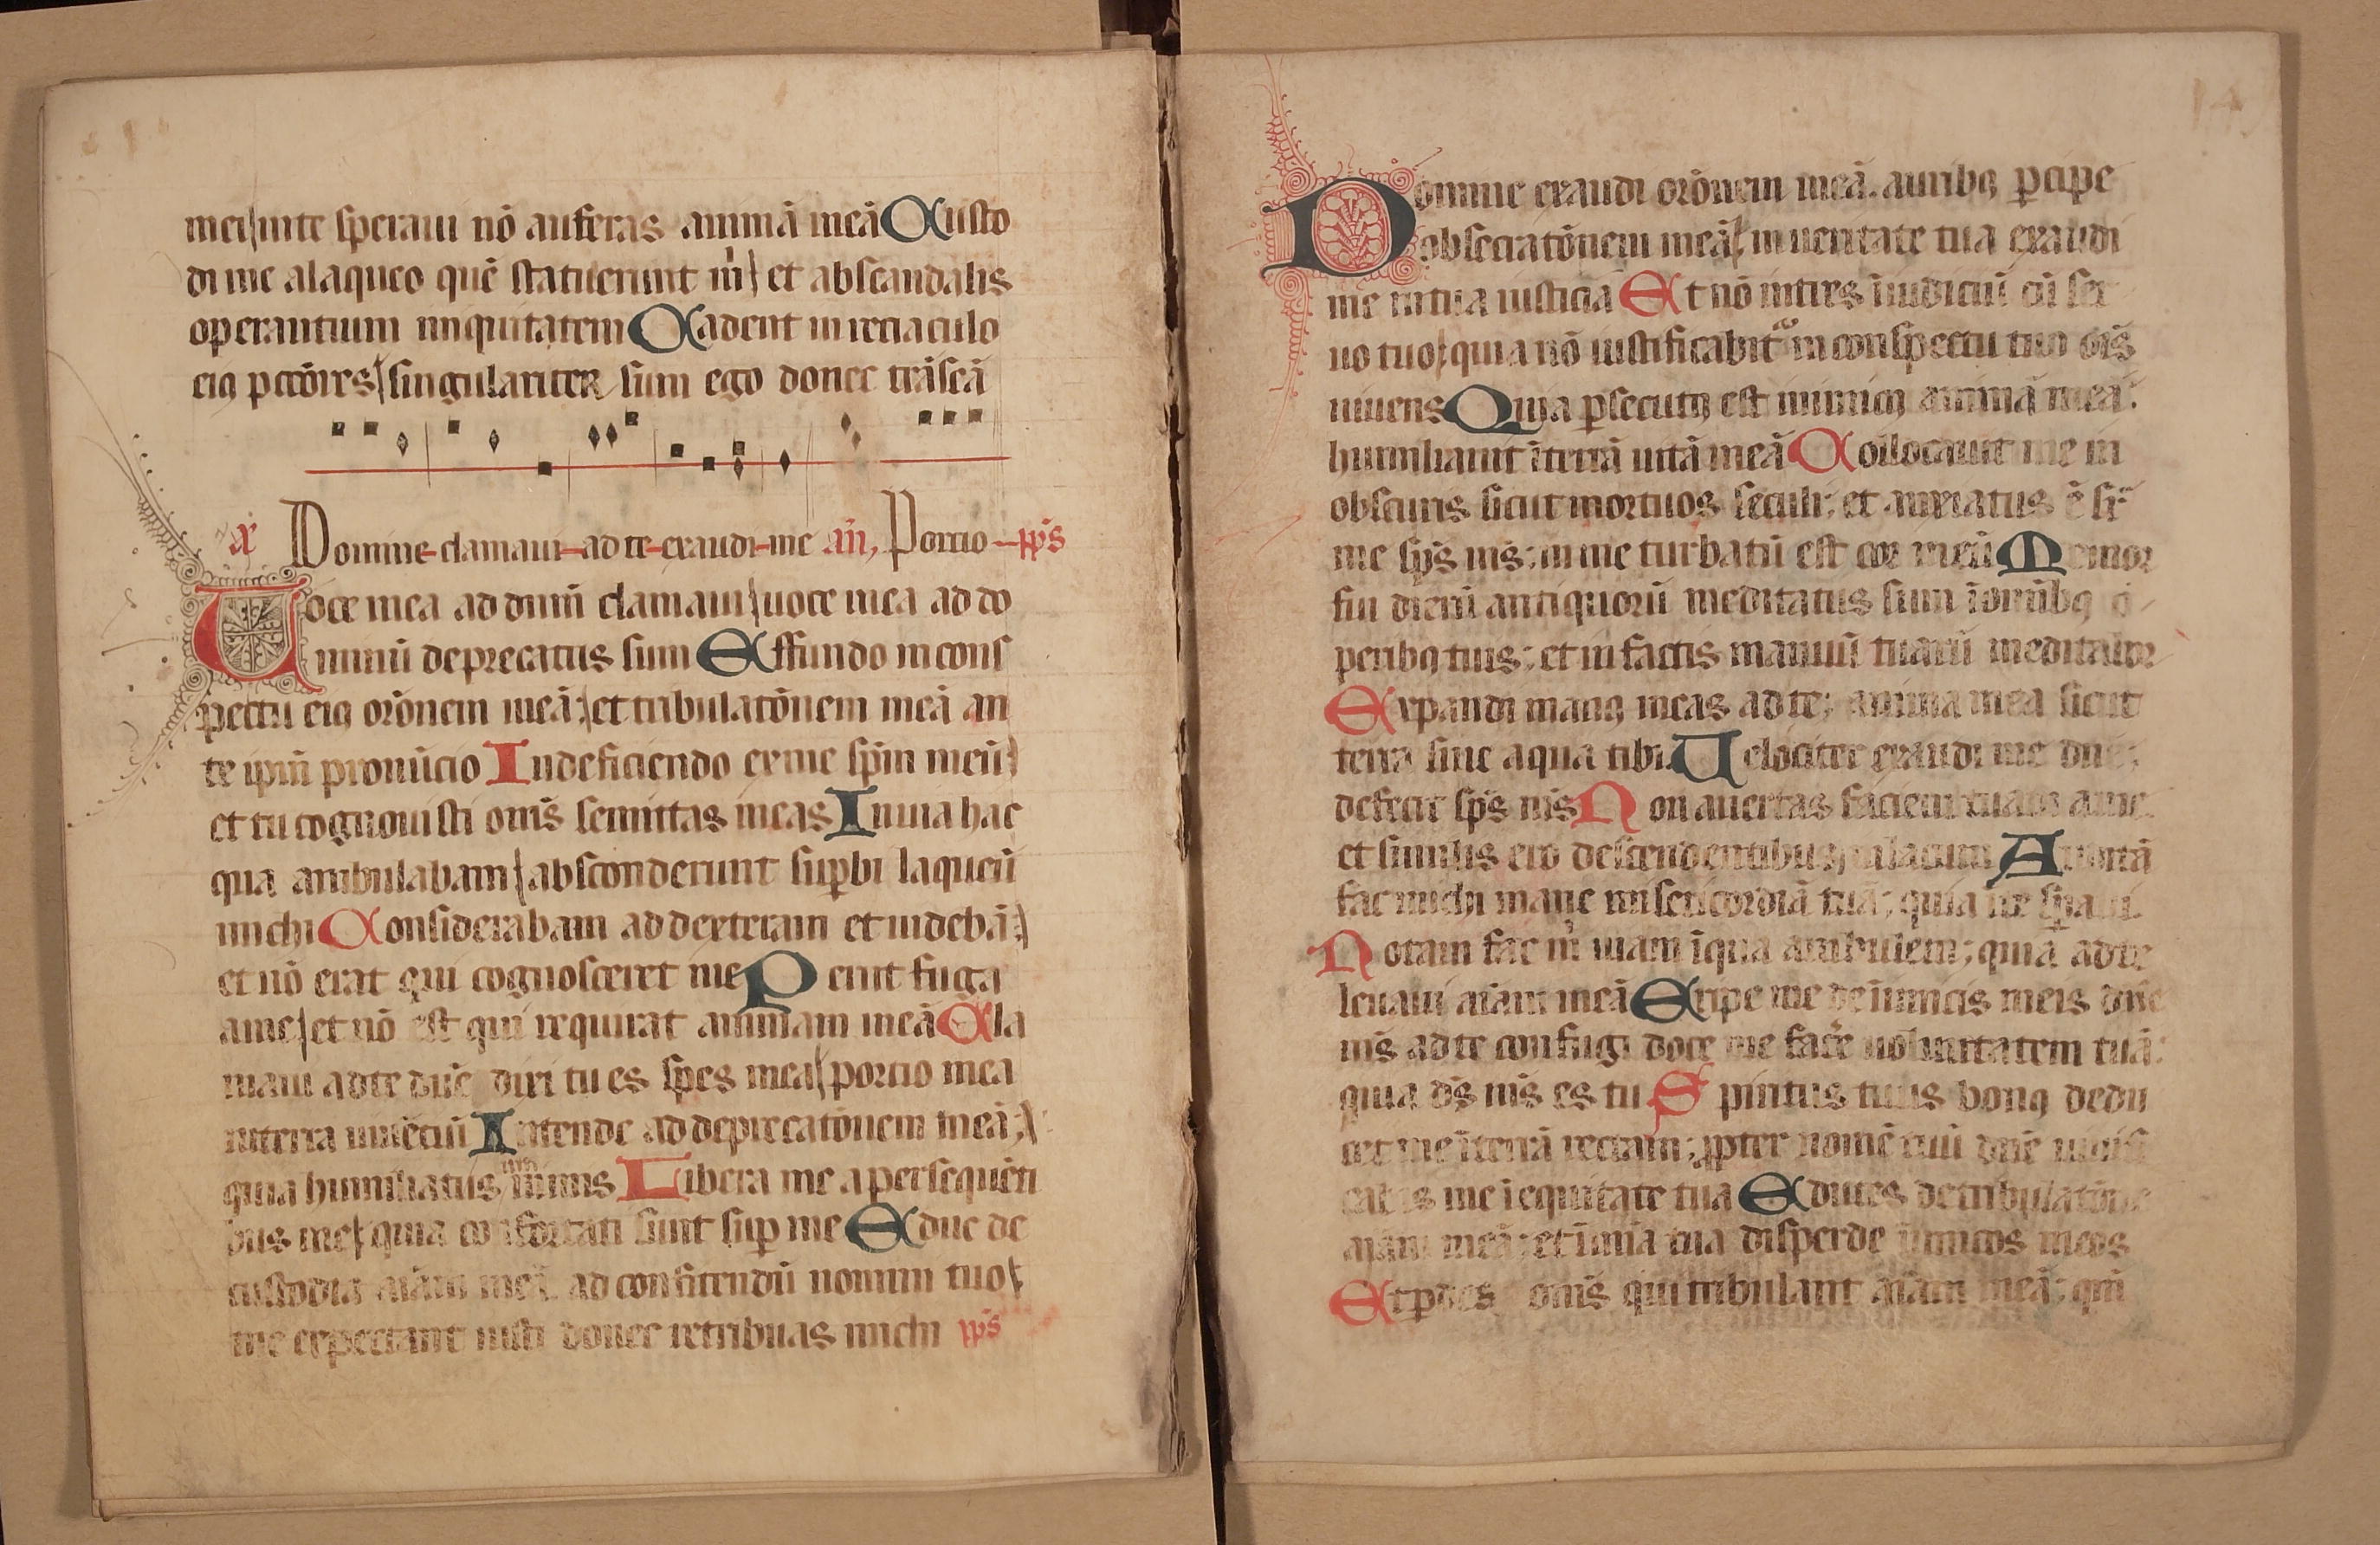 mei inte speraui nō auferas animā meā Custo
di me alaqueo quē statuerunt m̄ et abscandalis
operantium iniquitatem Cadent in retiaculo
eiꝰ pctōres singulariter sum ego donec trāseā
Domine clamaui ad te exaudi me an̄, Porcio pp̄s
Uoce mea ad dnm̄ clamaui uoce mea ad do
minū deprecatus sum Effundo incons
pectu eiꝰ orōnem meā; et tribulatōnem meā an
te ipm̄ pronūcio Indeficiendo exme spm̄ meū
et tu cognouisti om̄s semittas meas Inuia hac
qua ambulabam absconderunt suꝑbi laqueū
michi Considerabam ad dexteram et uidebā;
et nō erat qui cognosceret me Periit fuga
ame et nō est qui requirat animam meā Cla
maui adte dn̄e dixi tu es spes mea porcio mea
interra uiuēciū Intende ad deprecatōnem meā;
quia humiliatus sum nimis Libera me a persequēti
bus me quia confortati sunt suꝑ me Educ de
custodia aiām meā ad confitendū nomini tuo
me expectant iusti donec retribuas michi pp̄s
Domine exaudi orōnem meā. auribꝰ ꝑcipe
obsecratōnem meā inueritate tua exaudi
me intua iusticia Et nō intres īiudiciū cū ser
uo tuo quia nō iustificabit᷑ in conspectu tuo om̄s
uiuens Quia ꝑsecutꝰ est inimicꝰ animā meā:
humiliauit īterrā uitā meā Collocauit me in
obscuris sicut mortuos seculi; et anxiatus ē sr̄
me sp̄s m̄s; in me turbatū est cor meū Memor
fui dierū antiquorū meditatus sum īomībꝰ o
peribꝰ tuis; et in factis manuū tuarū meditabor
Expandi manꝰ meas ad te; anima mea sicut
terra sine aqua tibi Uelociter exaudi me dn̄e;
defecit sp̄s m̄s Non auertas faciem tuam ame
et similis ero descendentibus inlacum Auditā
fac michi mane misericordiā tuā; quia ite sꝑaui.
Notam fac m̄ uiam īqua ambulem; quia adte
leuaui aiām meā Eripe me deinimicis meis dn̄e
m̄s adte confugi doce me facē uoluntatem tuā:
quia ds̄ m̄s es tu Spiritus tuus bonꝰ dedu
cet me īterrā rectam; ꝓpter nomē tuū dn̄e uiuifi
cabis me īequitate tua Educes detribulatōne
aiām meā; et īmīa tua disperde īimicos meos
Et ꝑdes om̄s qui tribulant aiām meā; qm̄